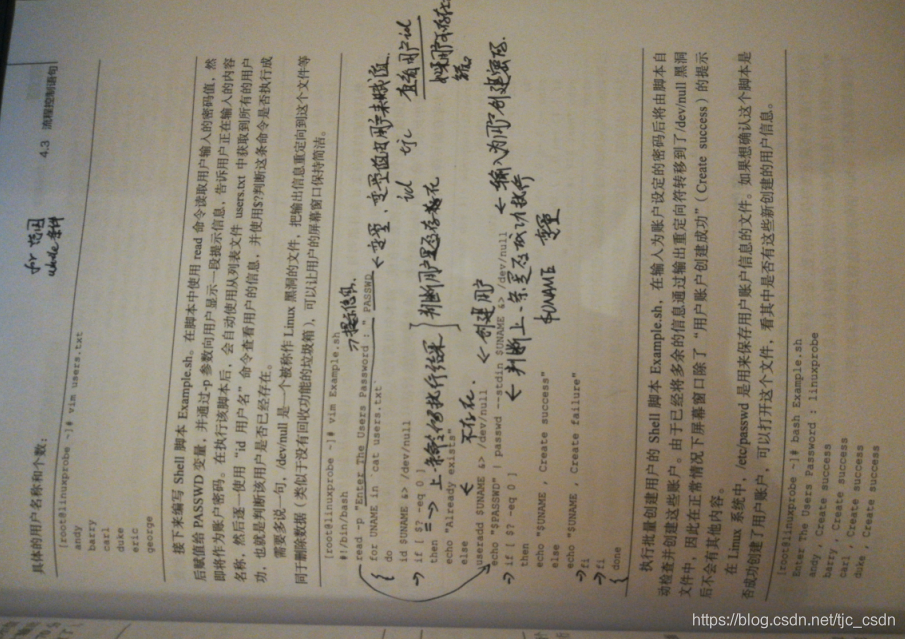 4.3 流程控制语句
for 范围
while 条件
具体的用户名称和个数:
[root@linuxprobe ~]# vim users.txt
andy
barry
carl
duke
eric
george
接下来编写 Shell 脚本 Example.sh。在脚本中使用 read 命令读取用户输入的密码值，然
后赋值给 PASSWD 变量，并通过-p 参数向用户显示一段提示信息，告诉用户正在输入的内容
即将作为账户密码。在执行该脚本后，会自动使用从列表文件 users.txt 中获取到所有的用户
名称，然后逐一使用“id 用户名”命令查看用户的信息，并使用$?判断这条命令是否执行成
功，也就是判断该用户是否已经存在。
需要多说一句，/dev/null 是一个被称作 Linux 黑洞的文件，把输出信息重定向到这个文件等
同于删除数据（类似于没有回收功能的垃圾箱），可以让用户的屏幕窗口保持简洁。
[root@linuxprobe ~]# vim Example.sh
#!/bin/bash
→提示信息.
read -p "Enter The Users Password : " PASSWD ← 变量.
for UNAME in `cat users.txt`
do
id tjc 查看用户id
id $UNAME &> /dev/null
if [ $? -eq 0 ] ⇒ 上一条命令的执行结果 } 判断用户是否存在
then
echo "Already exists"
else ← 不存在.
useradd $UNAME &> /dev/null ← 创建用户
echo "$PASSWD" | passwd --stdin $UNAME &> /dev/null ← 输入为用户创建密码.
if [ $? -eq 0 ] ← 判断上一条是否成功执行
then $UNAME 变量
echo "$UNAME , Create success"
else
echo "$UNAME , Create failure"
fi
fi
done
执行批量创建用户的 Shell 脚本 Example.sh，在输入为账户设定的密码后将由脚本自
动检查并创建这些账户。由于已经将多余的信息通过输出重定向符转移到了/dev/null 黑洞
文件中，因此在正常情况下屏幕窗口除了“用户账户创建成功”（Create success）的提示
后不会有其他内容。
在 Linux 系统中，/etc/passwd 是用来保存用户账户信息的文件。如果想确认这个脚本是
否成功创建了用户账户，可以打开这个文件，看其中是否有这些新创建的用户信息。
[root@linuxprobe ~]# bash Example.sh
Enter The Users Password : linuxprobe
andy , Create success
barry , Create success
carl , Create success
duke , Create success
https://blog.csdn.net/tjc_csdn